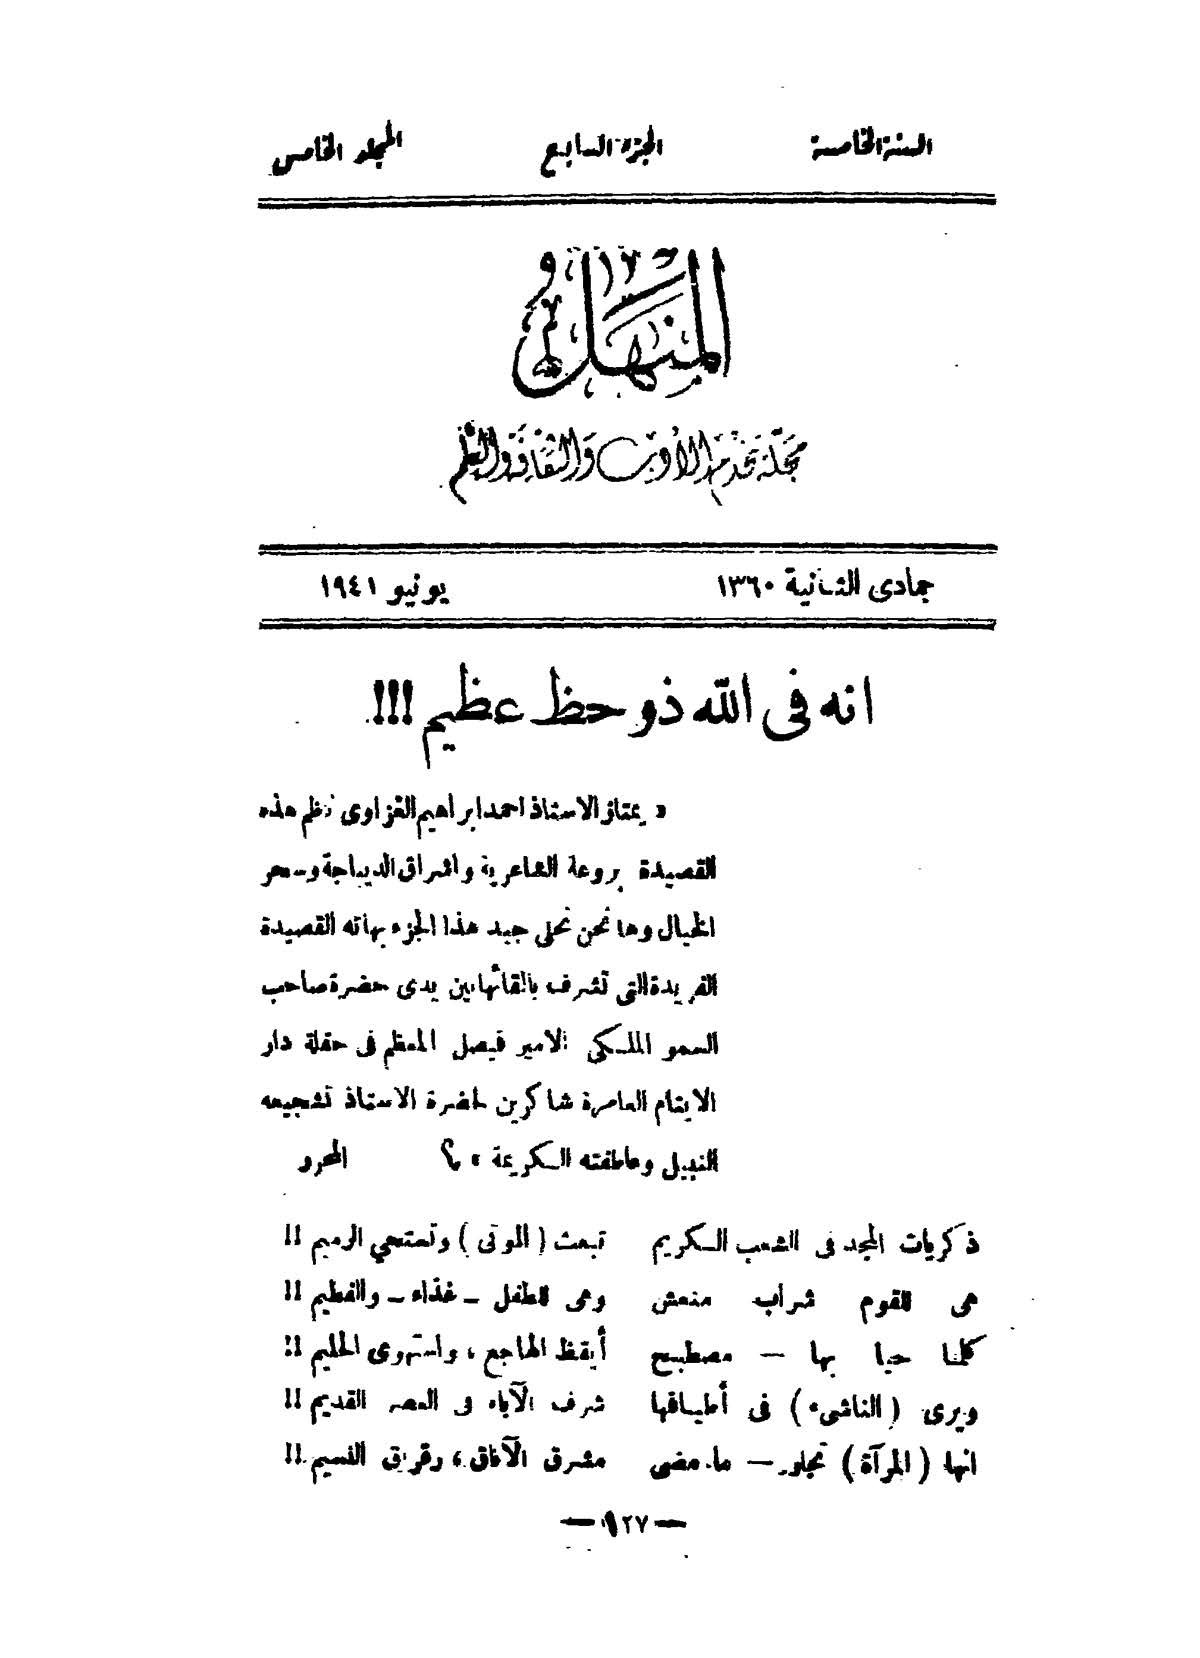 السنة الخامسة الجزء السابع المجلد الخامس
المنهل
مجلة تخدم الأدب والثقافة والعلم
جمادى الثانية ١٣٦٠ يونيو ١٩٤١
انه فى الله ذو حظ عظيم !!!
« يمتاز الاستاذ احمد ابراهيم الغزاوى نظم هذه
القصيدة بروعة الشاعرية واشراق الديباجة وسحر
الخيال وها نحن نحلى جيد هذا الجزء بهاته القصيدة
الفريدة التى تشرف بالقائها بين يدى حضرة صاحب
السمو الملكي الامير فيصل المعظم فى حفلة دار
الايتام العامرة شاكرين لحضرة الاستاذ تشجيعه
النبيل وعاطفته الكريمة » المحرر
ذكريات المجد فى الشعب الكريم تبعث ( الموتى ) وتستحي الرميم !!
هى للقوم شراب منعش وهى للطفل ــ غذاء ــ والفطيم !!
كلنا حيا بها — مصطبح أيقظ الهاجع ، واستهوى الحليم !!
ويرى ( الناشىء ) فى أطيافها شرف الآباء فى العصر القديم !!
انها ( المرآة ) تجلو — ما مضى مشرق الآفاق ، رقراق النسيم !!
— ١٢٧ —